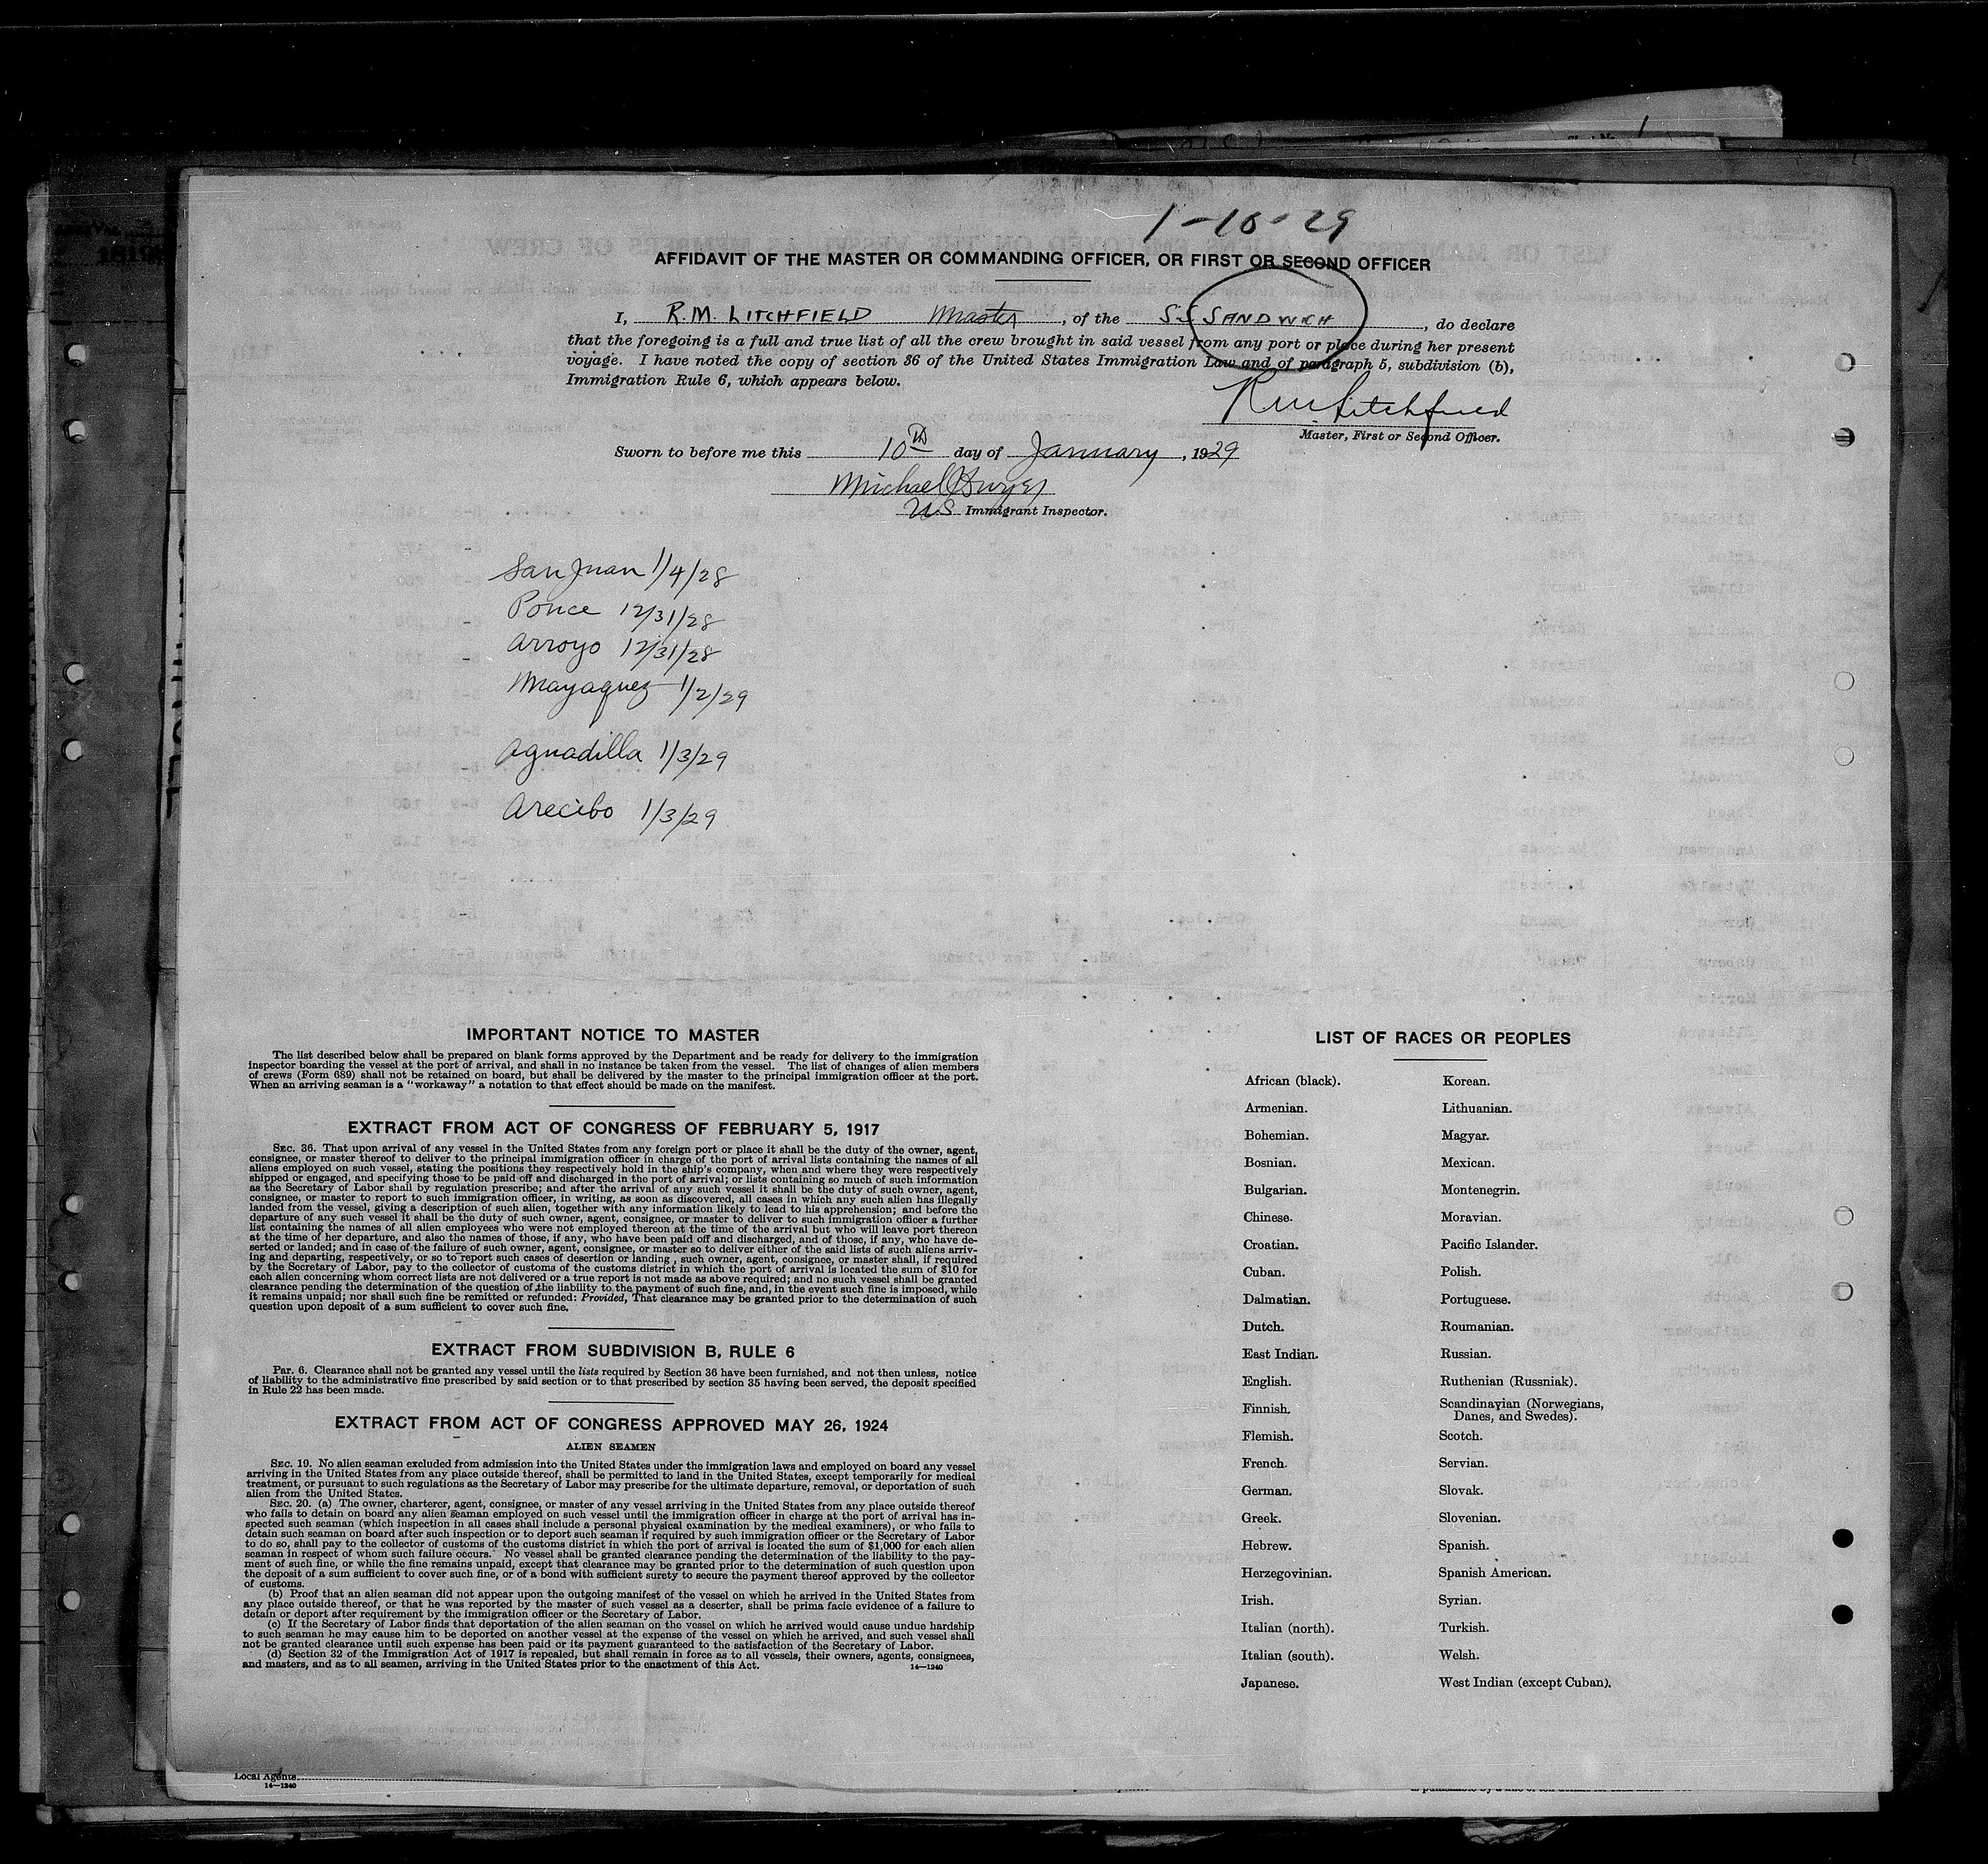 1-10-29
AFFIDAVIT OF THE MASTER OR COMMANDING OFFICER, OR FIRST OR SECOND OFFICER
I, R.M. LITCHFIELD Master, of the SS SANDWICH, do declare
that the foregoing is a full and true list of all the crew brought in said vessel from any port or place during her present
voyage. I have noted the copy of section 36 of the United States Immigration Law and of paragraph 5, subdivision (b),
Immigration Rule 6, which appears below.
RM Litchfield
Master, First or Second Officer.
Sworn to before me this 10th day of January, 1929
Michael
US Immigrant Inspector.
San Juan 1/4/28
Ponce 12/31/28
Arroyo 12/31/28
Mayaquez 1/2/29
Aguadilla 1/3/29
Arecibo 1/3/29
IMPORTANT NOTICE TO MASTER
The list described below shall be prepared on blank forms approved by the Department and be ready for delivery to the immigration
inspector boarding the vessel at the port of arrival, and shall in no instance be taken from the vessel. The list of changes of alien members
of crews (Form 689) shall not be retained on board, but shall be delivered by the master to the principal immigration officer at the port.
When an arriving seaman is a "workaway" a notation to that effect should be made on the manifest.
EXTRACT FROM ACT OF CONGRESS OF FEBRUARY 5, 1917
SEC. 36. That upon arrival of any vessel in the United States from any foreign port or place it shall be the duty of the owner, agent,
consignee, or master thereof to deliver to the principal immigration officer in charge of the port of arrival lists containing the names of all
aliens employed on such vessel, stating the positions they respectively hold in the ship's company, when and where they were respectively
shipped or engaged, and specifying those to be paid off and discharged in the port of arrival; or lists containing so much of such information
as the Secretary of Labor shall by regulation prescribe; and after the arrival of any such vessel it shall be the duty of such owner, agent,
consignee, or master to report to such immigration officer, in writing, as soon as discovered, all cases in which any such alien has illegally
landed from the vessel, giving a description of such alien, together with any information likely to lead to his apprehension; and before the
departure of any such vessel it shall be the duty of such owner, agent, consignee, or master to deliver to such immigration officer a further
list containing the names of all alien employees who were not employed thereon at the time of the arrival but who will leave port thereon
at the time of her departure, and also the names of those, if any, who have been paid off and discharged, and of those, if any, who have de-
serted or landed; and in case of the failure of such owner, agent, consignee, or master so to deliver either of the said lists of such aliens arriv-
ing and departing, respectively, or so to report such cases of desertion or landing, such owner, agent, consignee, or master shall, if required
by the Secretary of Labor, pay to the collector of customs of the customs district in which the port of arrival is located the sum of $10 for
each alien concerning whom correct lists are not delivered or a true report is not made as above required; and no such vessel shall be granted
clearance pending the determination of the question of the liability to the payment of such fine, and, in the event such fine is imposed, while
it remains unpaid; nor shall such fine be remitted or refunded: Provided, That clearance may be granted prior to the determination of such
question upon deposit of a sum sufficient to cover such fine.
EXTRACT FROM SUBDIVISION B, RULE 6
Par. 6. Clearance shall not be granted any vessel until the lists required by Section 36 have been furnished, and not then unless, notice
of liability to the administrative fine prescribed by said section or to that prescribed by section 35 having been served, the deposit specified
in Rule 22 has been made.
EXTRACT FROM ACT OF CONGRESS APPROVED MAY 26, 1924
ALIEN SEAMEN
SEC. 19. No alien seaman excluded from admission into the United States under the immigration laws and employed on board any vessel
arriving in the United States from any place outside thereof, shall be permitted to land in the United States, except temporarily for medical
treatment, or pursuant to such regulations as the Secretary of Labor may prescribe for the ultimate departure, removal, or deportation of such
alien from the United States.
SEC. 20. (a) The owner, charterer, agent, consignee, or master of any vessel arriving in the United States from any place outside thereof
who fails to detain on board any alien seaman employed on such vessel until the immigration officer in charge at the port of arrival has in-
spected such seaman (which inspection in all cases shall include a personal physical examination by the medical examiners), or who fails to
detain such seaman on board after such inspection or to deport such seaman if required by such immigration officer or the Secretary of Labor
to do so, shall pay to the collector of customs of the customs district in which the port of arrival is located the sum of $1,000 for each alien
seaman in respect of whom such failure occurs. No vessel shall be granted clearance pending the determination of the liability to the pay-
ment of such fine, or while the fine remains unpaid, except that clearance may be granted prior to the determination of such question upon
the deposit of a sum sufficient to cover such fine, or of a bond with sufficient surety to secure the payment thereof approved by the collector
of customs.
(b) Proof that an alien seaman did not appear upon the outgoing manifest of the vessel on which he arrived in the United States from
any place outside thereof, or that he was reported by the master of such vessel as a deserter, shall be prima facie evidence of a failure to
detain or deport after requirement by the immigration officer or the Secretary of Labor.
(c) If the Secretary of Labor finds that deportation of the alien seaman on the vessel on which he arrived would cause undue hardship
to such seaman he may cause him to be deported on another vessel at the expense of the vessel on which he arrived, and such vessel shall
not be granted clearance until such expense has been paid or its payment guaranteed to the satisfaction of the Secretary of Labor.
(d) Section 32 of the Immigration Act of 1917 is repealed, but shall remain in force as to all vessels, their owners, agents, consignees,
and masters, and as to all seamen, arriving in the United States prior to the enactment of this Act.
14—1240
LIST OF RACES OR PEOPLES
African (black).
Armenian.
Bohemian.
Bosnian.
Bulgarian.
Chinese.
Croatian.
Cuban.
Dalmatian.
Dutch.
East Indian.
English.
Finnish.
Flemish.
French.
German.
Greek.
Hebrew.
Herzegovinian.
Irish.
Italian (north).
Italian (south).
Japanese.
Korean.
Lithuanian.
Magyar.
Mexican.
Montenegrin.
Moravian.
Pacific Islander.
Polish.
Portuguese.
Roumanian.
Russian.
Ruthenian (Russniak).
Scandinavian (Norwegians,
Danes, and Swedes).
Scotch.
Servian.
Slovak.
Slovenian.
Spanish.
Spanish American.
Syrian.
Turkish.
Welsh.
West Indian (except Cuban).
Local Agents
14—1240